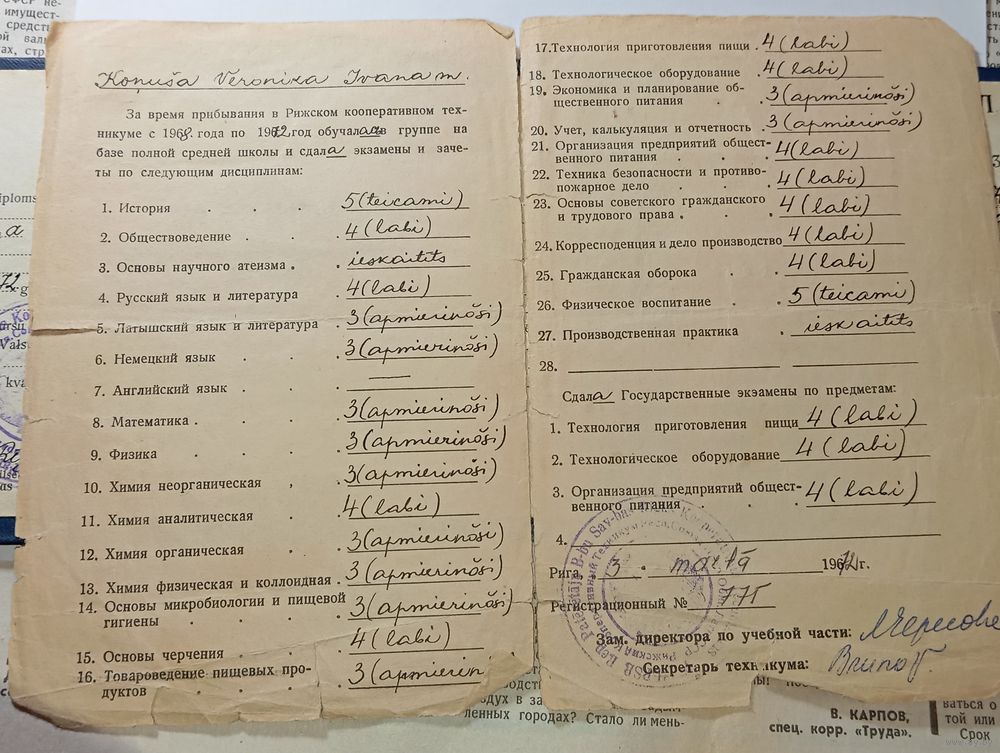 Koņuša Veronika Ivana m.
За время прибывания в Рижском кооперативном тех-
никуме с 1968. года по 1972 год обучалась в группе на
базе полной средней школы и сдала экзамены и заче-
ты по следующим дисциплинам:
1. История 5 (teicami)
2. Обществоведение 4 (labi)
3. Основы научного атеизма ieskaitīts
4. Русский язык и литература 4 (labi)
5. Латышский язык и литература 3 (apmierinoši)
6. Немецкий язык 3 (apmierinoši)
7. Английский язык —
8. Математика 3 (apmierinoši)
9. Физика 3 (apmierinoši)
10. Химия неорганическая 3 (apmierinoši)
11. Химия аналитическая 4 (labi)
12. Химия органическая 3 (apmierinoši)
13. Химия физическая и коллоидная 3 (apmierinoši)
14. Основы микробиологии и пищевой
гигиены 3 (apmierinoši)
15. Основы черчения 4 (labi)
16. Товароведение пищевых про-
дуктов 3 (apmierin
17. Технология приготовления пищи 4 (labi)
18. Технологическое оборудование 4 (labi)
19. Экономика и планирование об-
щественного питания 3 (apmierinoši)
20. Учет, калькуляция и отчетность 3 (apmierinoši)
21. Организация предприятий общест-
венного питания 4 (labi)
22. Техника безопасности и противо-
пожарное дело 4 (labi)
23. Основы советского гражданского
и трудового права 4 (labi)
24. Корресподенция и дело производство 4 (labi)
25. Гражданская оборока 4 (labi)
26. Физическое воспитание 5 (teicami)
27. Производственная практика ieskaitīts
28.
Сдала Государственные экзамены по предметам:
1. Технология приготовления пищи 4 (labi)
2. Технологическое оборудование 4 (labi)
3. Организация предприятий общест-
венного питания 4 (labi)
4.
Рига, 3. martā 1972 г.
Регистрационный № 775
Зам. директора по учебной части:
Секретарь техникума:
В. КАРПОВ,
спец. корр. «Труда».
ленных городах? Стало ли мень-
ваться о
той или
Срок